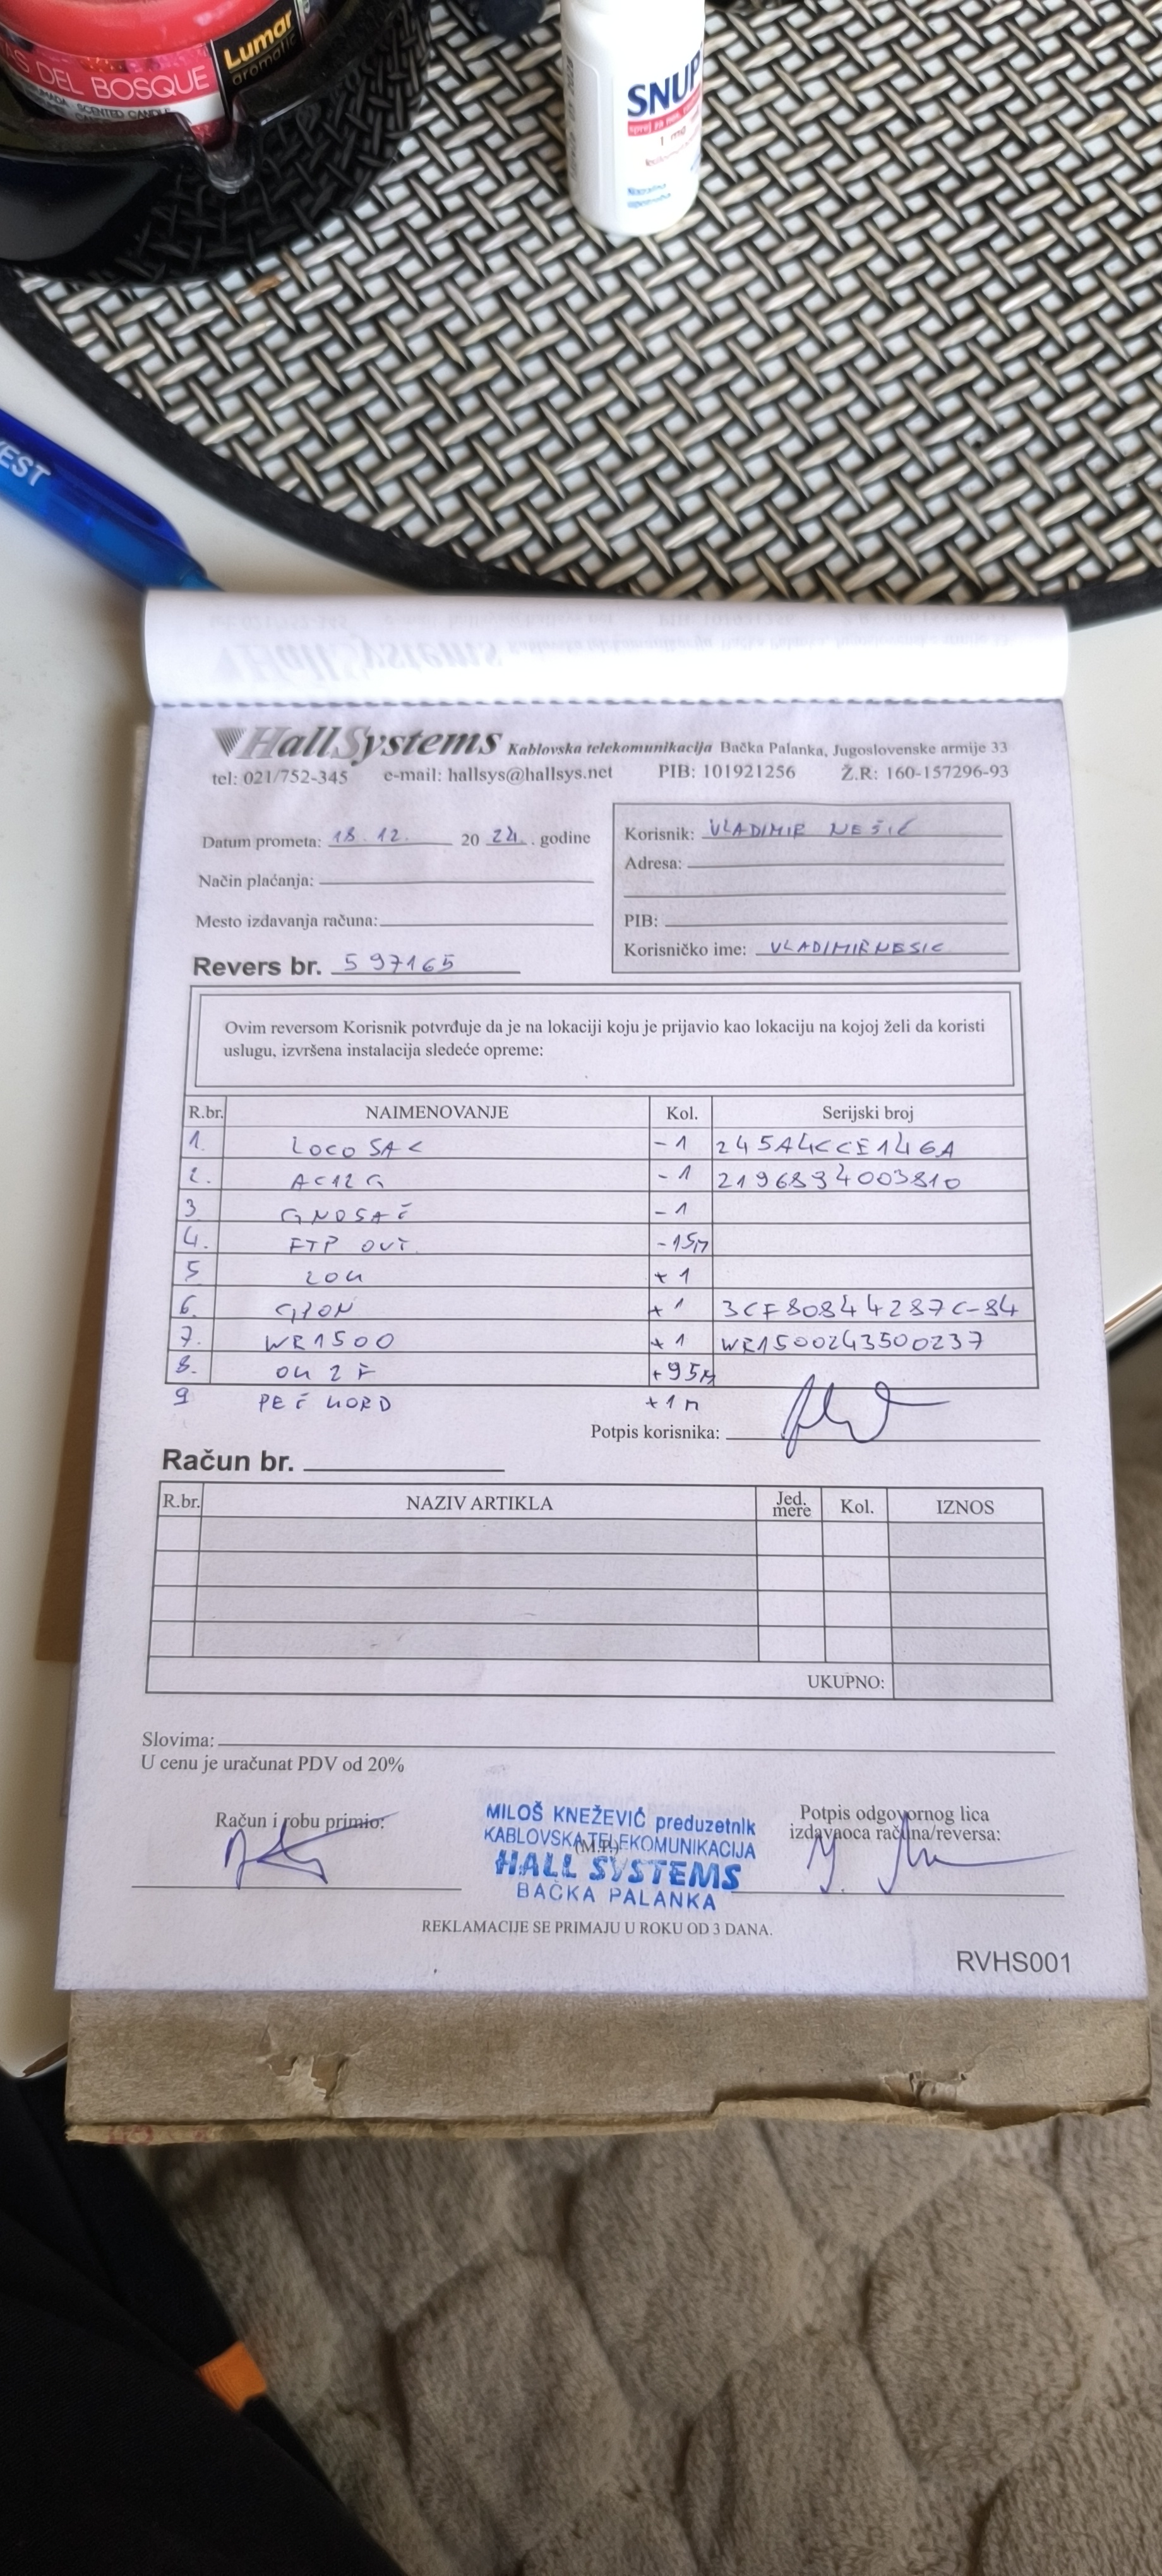 S DEL BOSQUE
SCENTED CANDLE
Lumar
aromatic
SNUP
EST
HallSystems Kablovska telekomunikacija Bačka Palanka, Jugoslovenske armije 33
tel: 021/752-345 e-mail: hallsys@hallsys.net PIB: 101921256 Ž.R: 160-157296-93
Datum prometa: 18.12. 20 24. godine
Način plaćanja:
Mesto izdavanja računa:
Revers br. 597165
Korisnik: VLADIMIR NEŠIĆ
Adresa:
PIB:
Korisničko ime: VLADIMIRNESIC
Ovim reversom Korisnik potvrđuje da je na lokaciji koju je prijavio kao lokaciju na kojoj želi da koristi
uslugu, izvršena instalacija sledeće opreme:
R.br. NAIMENOVANJE Kol. Serijski broj
1. LOCO 5AC -1 245A4CCE146A
2. AC12G -1 2196834003810
3 GNOSAČ -1
4. FTP OUT. -15M
5 ZOK +1
6. GPON +1 3CF80844287C-84
7. WR1500 +1 WR1500243500237
8. OK 2F +95M
9 PEČ KORD +1M
Potpis korisnika:
Račun br.
R.br. NAZIV ARTIKLA Jed. mere Kol. IZNOS
UKUPNO:
Slovima:
U cenu je uračunat PDV od 20%
Račun i robu primio:
MILOŠ KNEŽEVIĆ preduzetnik
KABLOVSKA TELEKOMUNIKACIJA
(M.P.)
HALL SYSTEMS
BAČKA PALANKA
Potpis odgovornog lica
izdavaoca računa/reversa:
REKLAMACIJE SE PRIMAJU U ROKU OD 3 DANA.
RVHS001